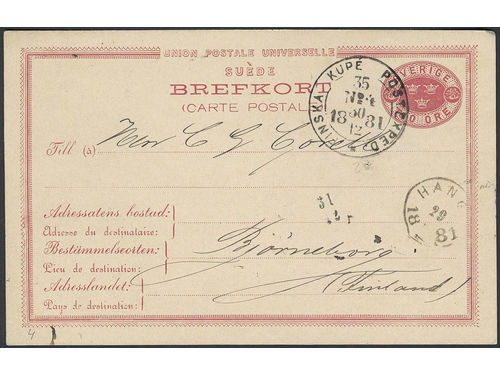 UNION POSTALE UNIVERSELLE
SUÈDE
BREFKORT
(CARTE POSTALE)
SVERIGE
ÖRE
KUPÉ POSTEXPED
35
30
18 81
12
Till (à)
Herr C G
HANG
29
18 81
Adressatens bostad:
Adresse du destinataire:
Bestämmelseorten:
Björneborg
Lieu de destination:
Adresslandet:
(Finland)
Pays de destination:
4